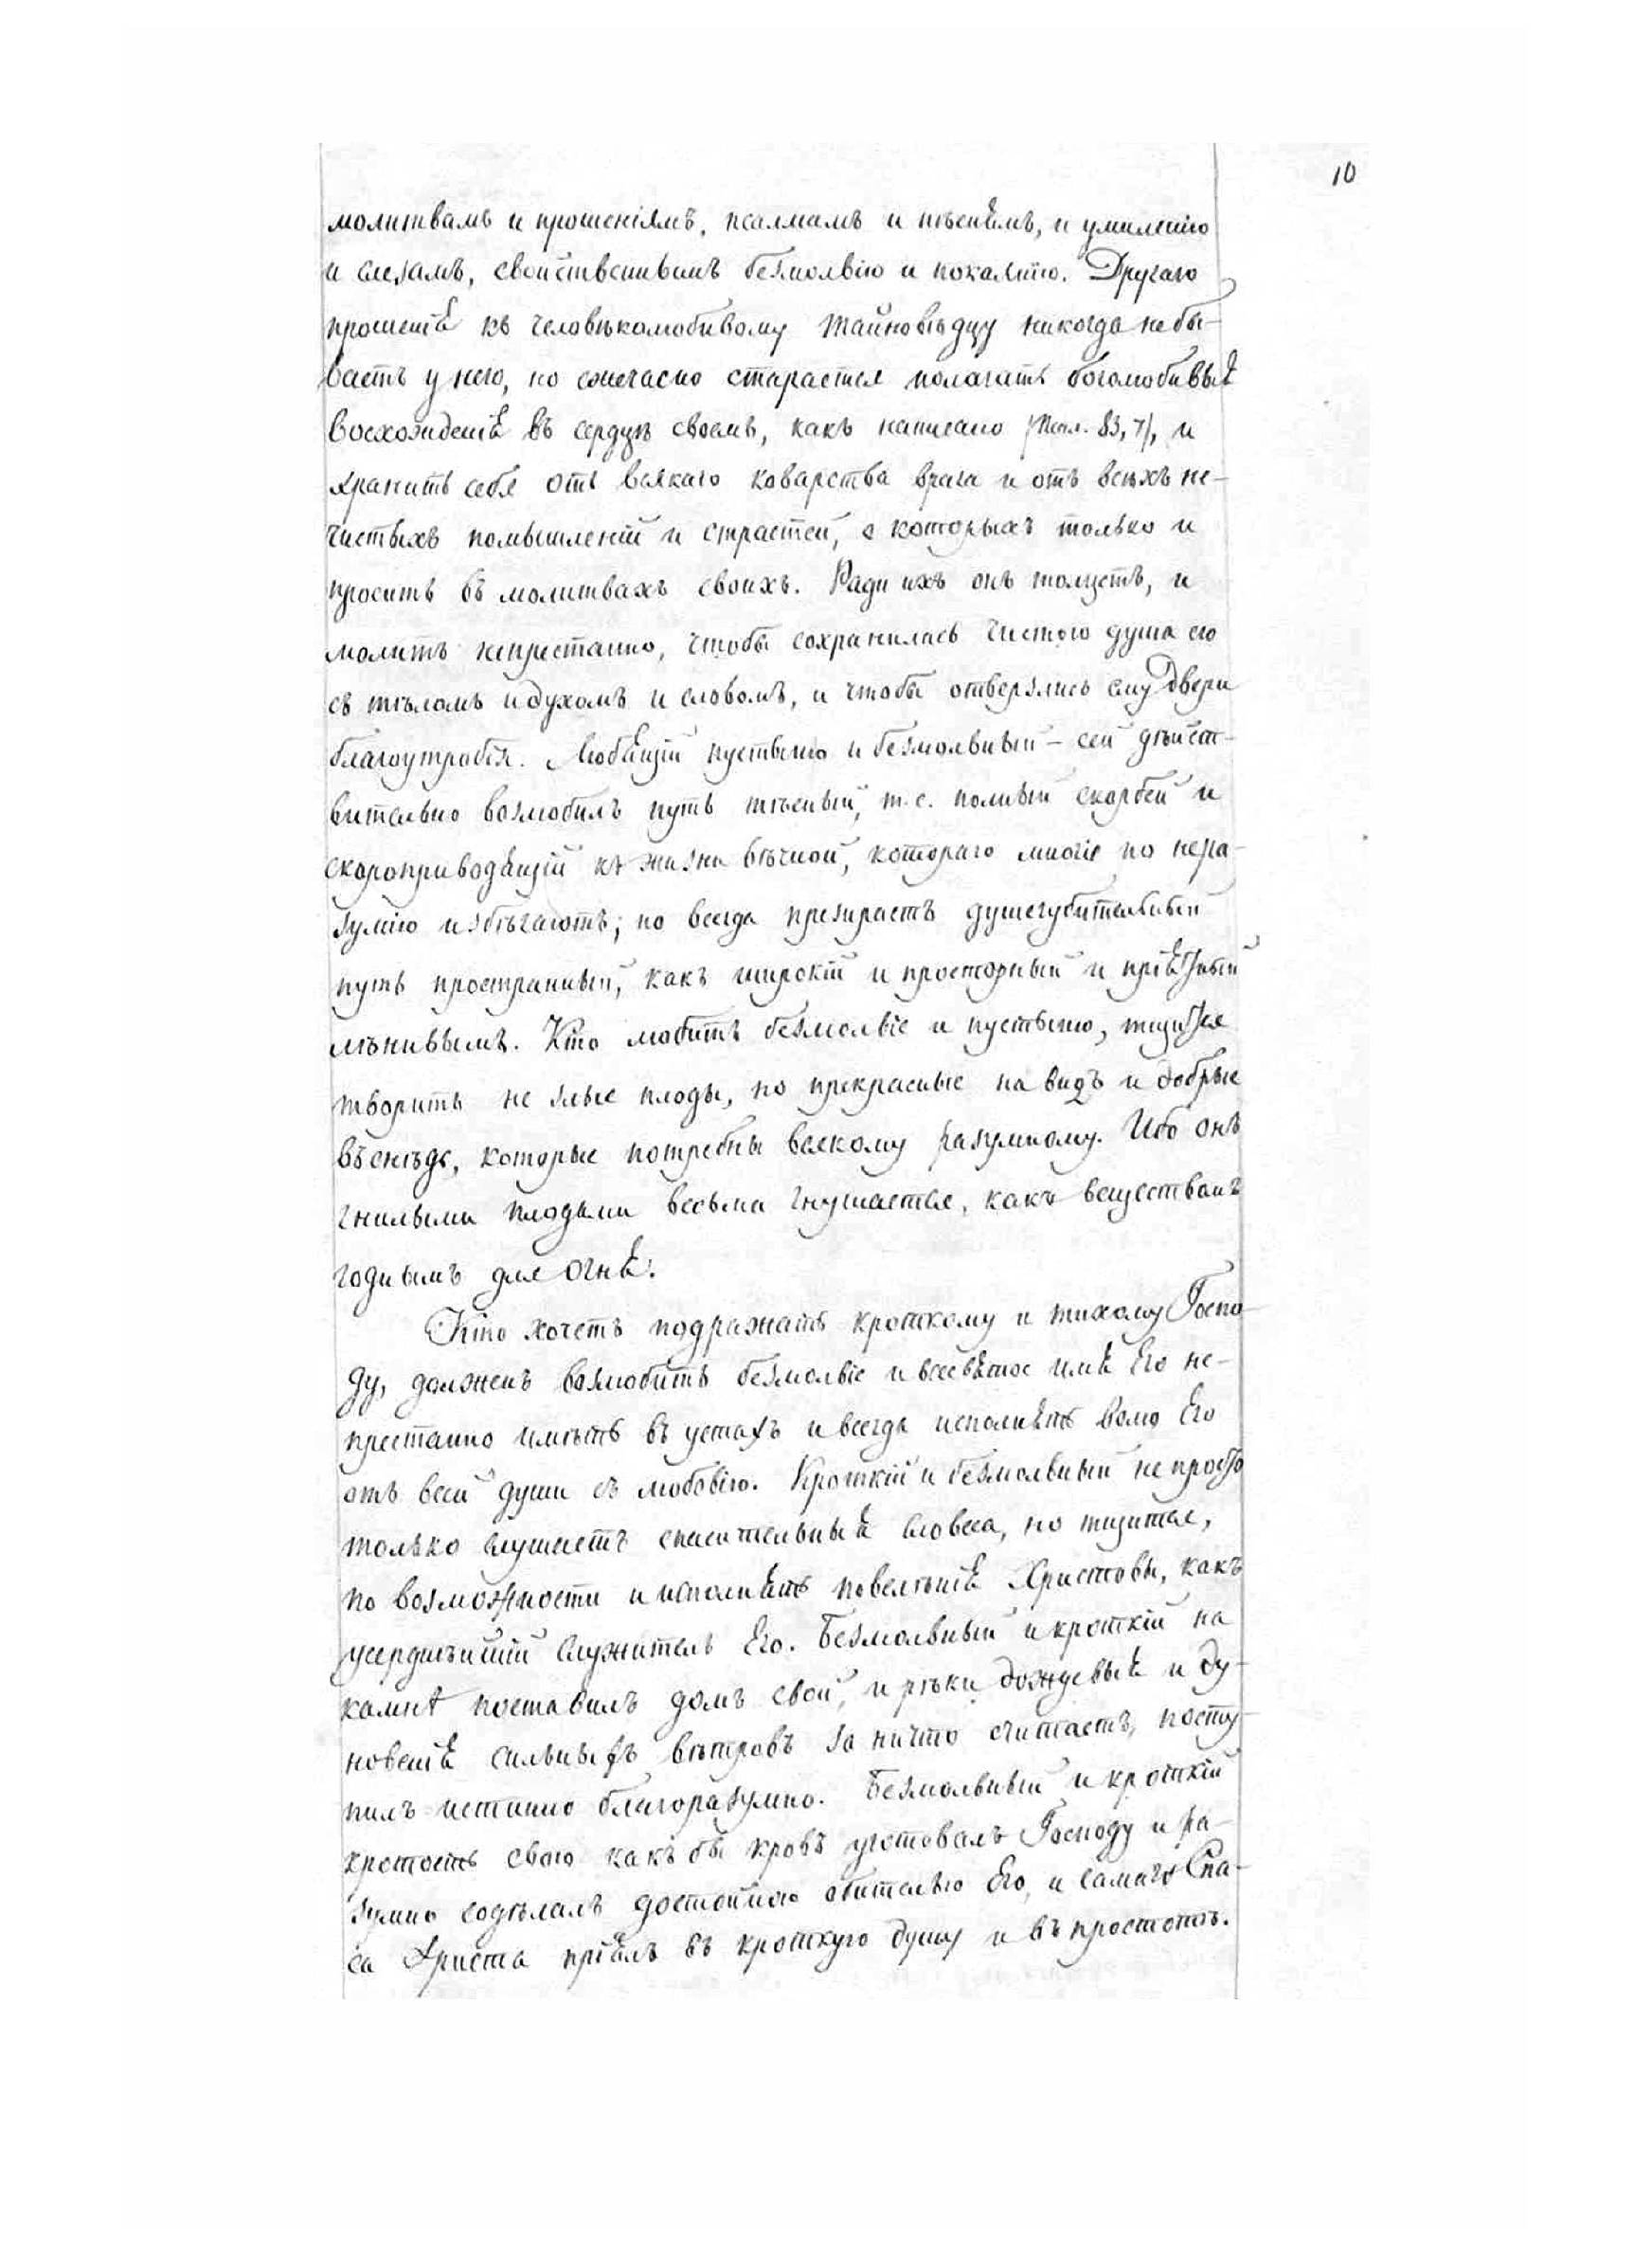 10
молитвамъ и прошеніямъ, псалмамъ и пѣснямъ, и умиленію
и слезамъ, свойственнымъ безмолвію и покаянію. Другаго
прошенія къ человѣколюбивому Тайновѣдцу никогда не бы-
ваетъ у него, но ежечасно старается полагать боголюбивыя
восхожденія въ сердцѣ своемъ, какъ написано (Псал. 83, 7), и
хранить себя отъ всякаго коварства врага и отъ всѣхъ не-
чистыхъ помышленій и страстей, о которыхъ только и
проситъ въ молитвахъ своихъ. Ради ихъ онъ толцетъ, и
молитъ непрестанно, чтобы сохранилась чистою душа его
съ тѣломъ и духомъ и словомъ, и чтобы отверзлись ему Двери
благоутробія. Любящій пустыню и безмолвный – сей дѣйст-
вительно возлюбилъ путь тѣсный, т. е. полный скорбей и
скороприводящій къ жизни вѣчной, котораго многіе по нера-
зумію избѣгаютъ; но всегда презираетъ душегубительный
путь пространный, какъ широкій и просторный и пріятный
лѣнивымъ. Кто любитъ безмолвіе и пустыню, тщится
творить не злые плоды, но прекрасные на видъ и добрые
въ снѣдь, которые потребны всякому разумному. Ибо онъ
гнилыми плодами весьма гнушается, какъ веществамъ
годнымъ для огня.
Кто хочетъ подражать кроткому и тихому Госпо-
ду, долженъ возлюбить безмолвіе и всесвятое имя Его не-
престанно имѣть въ устахъ и всегда исполнять волю Его
отъ всей души съ любовію. Кроткій и безмолвный не просто
только слушаетъ спасительныя словеса, но тщится,
по возможности и исполнять повелѣнія Христовы, какъ
усерднѣйшій служитель Его. Безмолвный и кроткій на
камнѣ поставилъ домъ свой, и рѣки дождевыя и ду-
новенія сильныхъ вѣтровъ за ничто считаетъ, посту-
пилъ истинно благоразумно. Безмолвный и кроткій
кротость свою какъ бы кровъ уготовалъ Господу и ра-
зумно содѣлалъ достойною обителью Его, и самаго Спа-
са Христа пріялъ въ кроткую душу и въ простотѣ.